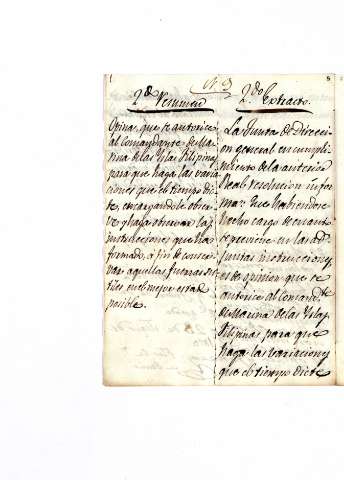 1
8
N. 3
2.do Resumen
Opina, que se autorice
al Comandante de Ma-
rina de las Yslas Filipinas
para que haga las varia-
ciones que el tiempo dic-
te, encargandole obser-
ve y haga observar las
instrucciones que ha
formado, á fin de conser-
var aquellas fuerzas su-
tiles en el mejor estado
posible.
2.do Extracto.
La Junta de Direcci-
on general en cumpli-
miento de la anterior
Real resolucion infor-
ma: Que habiendose
hecho cargo de cuanto
se previene en las ad-
juntas instrucciones
es de opinion que se
autorice al Comand.te
de Marina de las Yslas
Filipinas para que
haga las variaciones
que el tiempo dicte